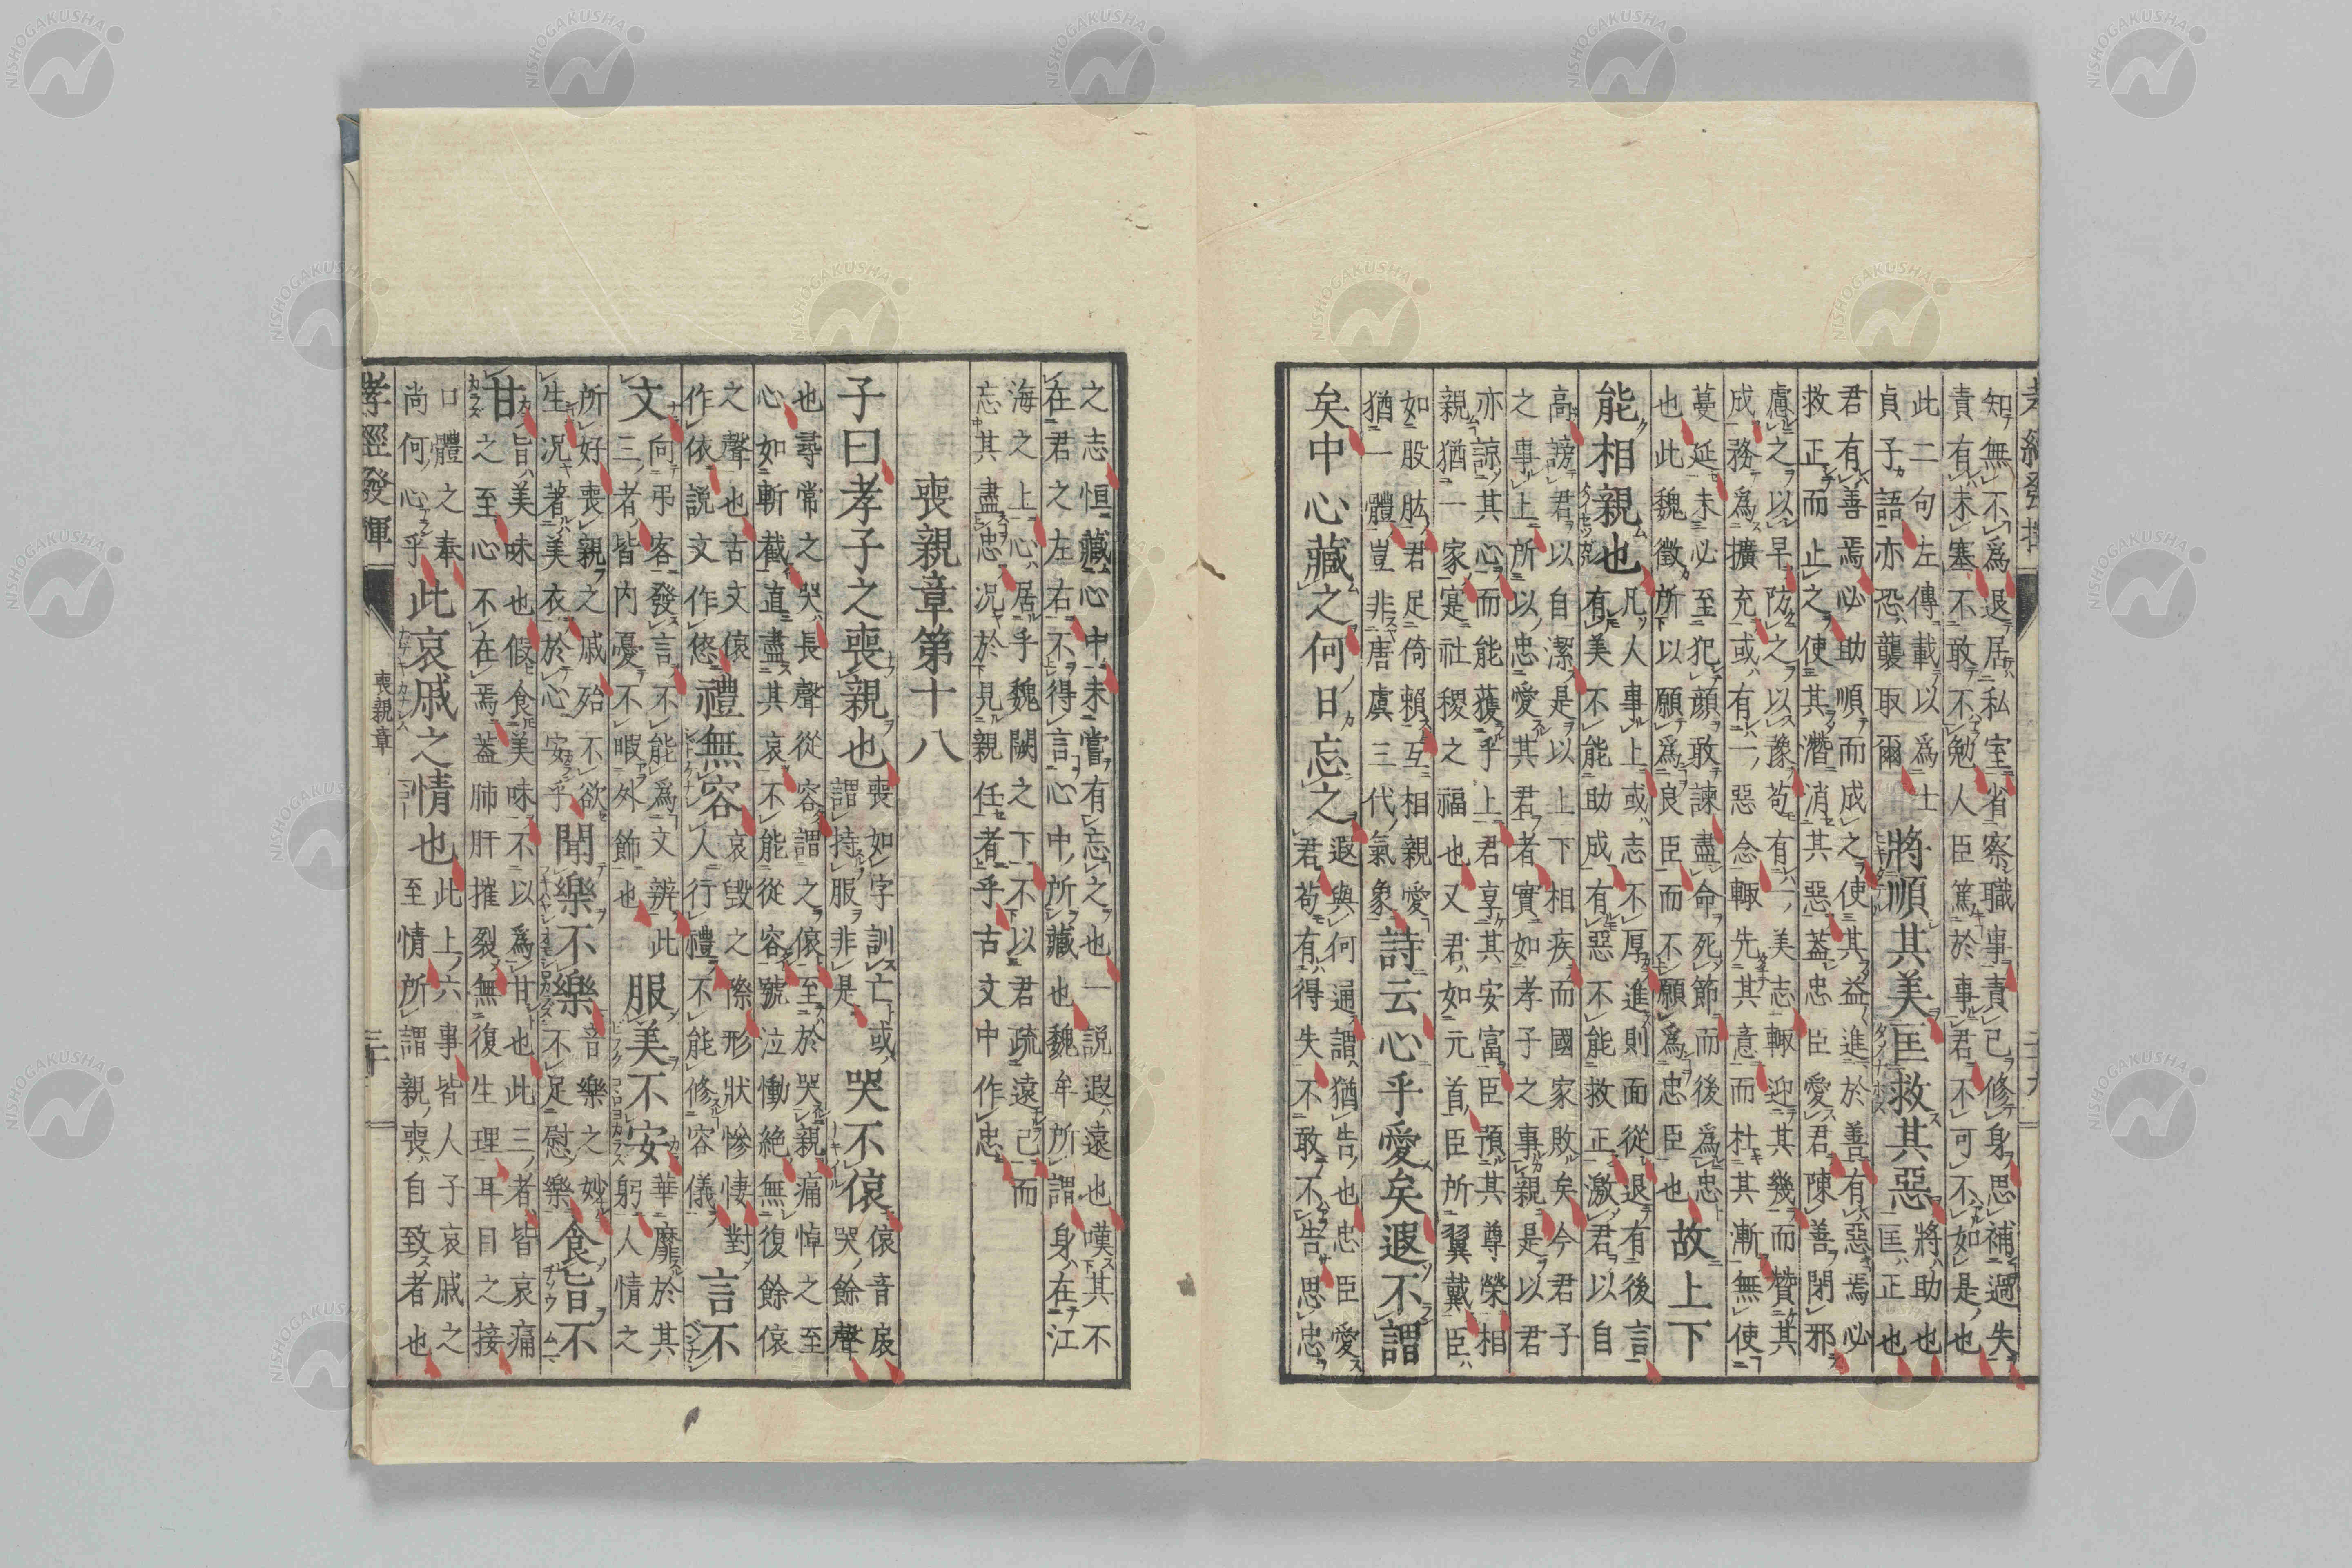 知無不爲退居私室省察職事責己修身思補過失
責有未塞不敢不勉人臣篤於事君不可不如是也
此二句左傳載以爲士
貞子語亦恐襲取爾
將順其美匡救其惡
將助也
匡正也
君有善焉必助順而成之使其益進於善有惡焉必
救正而止之使其潛消其惡蓋忠臣愛君陳善閉邪
慮之以早防之以豫苟有一美志輒迎其幾而贊其
成務爲擴充或有一惡念輒先其意而杜其漸無使
蔓延未必至犯顔敢諫盡命死節而後爲忠
也此魏徵所以願爲良臣而不願爲忠臣也
故上下
能相親也
凡人事上或志不厚進則面從退有後言
有美不能助成有惡不能救正激君以自
高謗君以自潔是以上下相疾而國家敗矣今君子
之事上所以忠愛其君者實如孝子之事親是以君
亦諒其心而能獲乎上君享其安富臣預其尊榮相
親猶一家寔社稷之福也又君如元首臣所翼戴臣
如股肱君足倚賴互相親愛
猶一體豈非唐虞三代氣象
詩云心乎愛矣遐不謂
矣中心藏之何日忘之
遐與何通謂猶告也忠臣愛
君苟有得失不敢不告思忠
之志恒藏心中未嘗有忘之也一説遐遠也嘆其不
在君之左右不得言心中所藏也魏牟所謂身在江
海之上心居乎魏闕之下不以君疏遠己而
忘其盡忠况於見親任者乎古文中作忠
喪親章第十八
子曰孝子之喪親也
喪如字訓亡或
謂持服非是
哭不偯
偯音扆
哭餘聲
也尋常之哭長聲從容謂之偯至於哭親痛悼之至
心如斬截直盡其哀不能從容號泣慟絶無復餘偯
之聲也古文偯
作依説文作㥋
禮無容
哀毀之際形狀慘悽對
人行禮不能修容儀
言不
文
向弔客發言不能爲文辨此
三者皆内憂不暇外飾也
服美不安
華靡於其
躬人情之
所好喪親之戚殆不欲
生况著美衣於心安乎
聞樂不樂
音樂之妙
不足慰樂
食旨不
甘
旨美味也假食美味不以爲甘也此三者皆哀痛
之至心不在焉蓋肺肝摧裂無復生理耳目之接
口體之奉
尚何心乎
此哀戚之情也
此上六事皆人子哀戚之
至情所謂親喪自致者也
孝經發揮
喪親章
二十